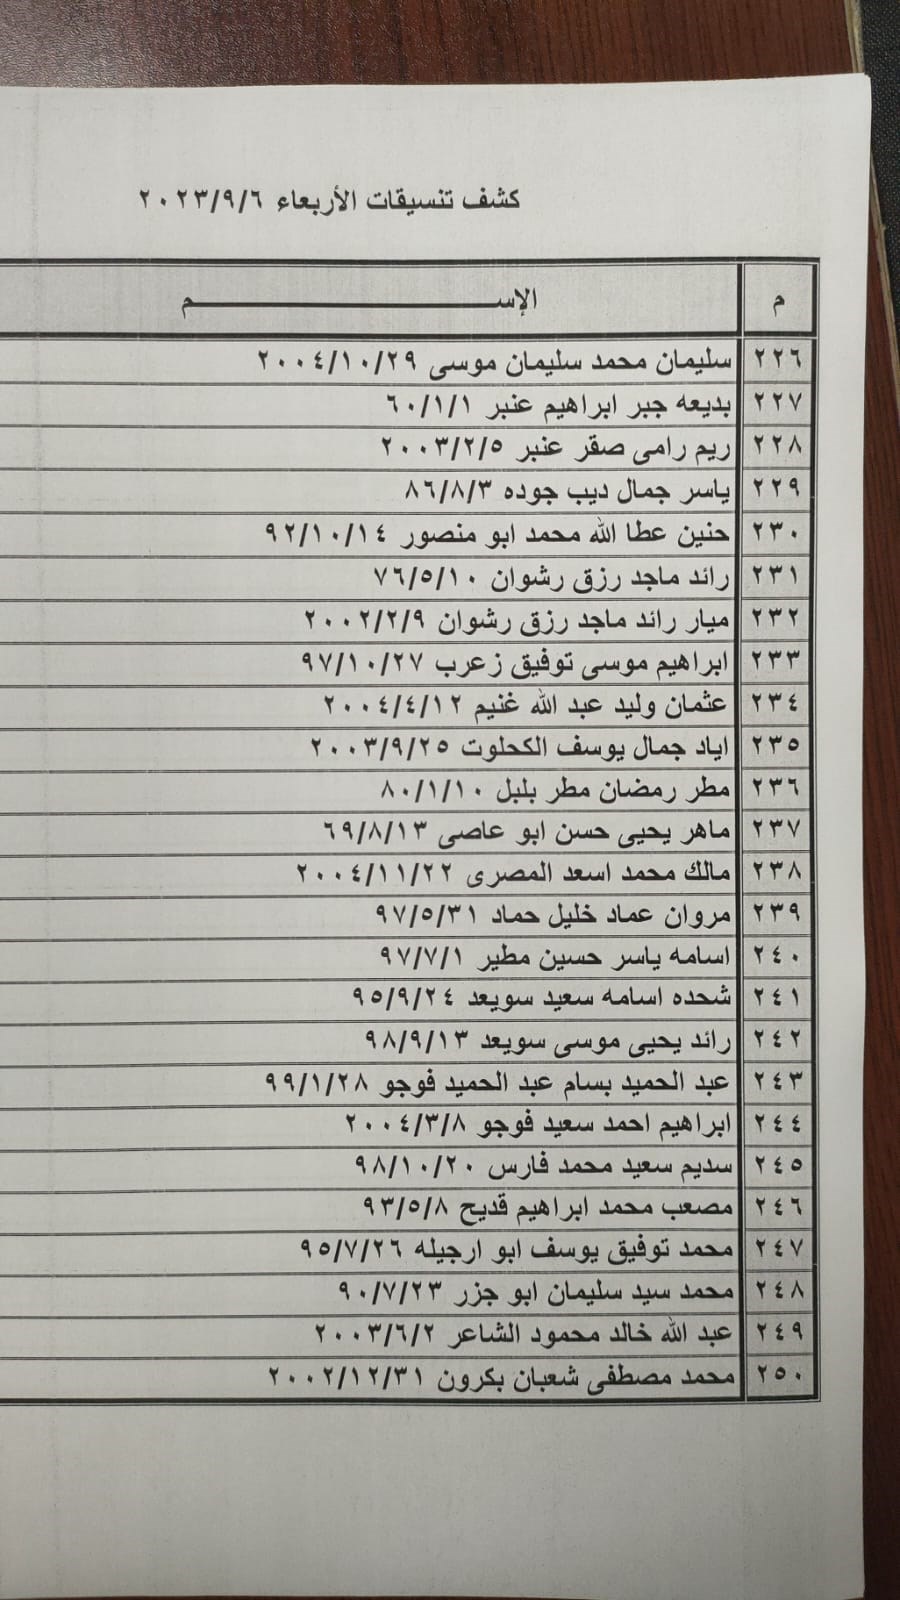 كشف تنسيقات الأربعاء ٢٠٢٣/٩/٦
م الإســـــــــم
٢٢٦ سليمان محمد سليمان موسى ٢٠٠٤/١٠/٢٩
٢٢٧ بديعه جبر ابراهيم عنبر ٦٠/١/١
٢٢٨ ريم رامى صقر عنبر ٢٠٠٣/٢/٥
٢٢٩ ياسر جمال ديب جوده ٨٦/٨/٣
٢٣٠ حنين عطا الله محمد ابو منصور ٩٢/١٠/١٤
٢٣١ رائد ماجد رزق رشوان ٧٦/٥/١٠
٢٣٢ ميار رائد ماجد رزق رشوان ٢٠٠٢/٢/٩
٢٣٣ ابراهيم موسى توفيق زعرب ٩٧/١٠/٢٧
٢٣٤ عثمان وليد عبد الله غنيم ٢٠٠٤/٤/١٢
٢٣٥ اياد جمال يوسف الكحلوت ٢٠٠٣/٩/٢٥
٢٣٦ مطر رمضان مطر بلبل ٨٠/١/١٠
٢٣٧ ماهر يحيى حسن ابو عاصى ٦٩/٨/١٣
٢٣٨ مالك محمد اسعد المصرى ٢٠٠٤/١١/٢٢
٢٣٩ مروان عماد خليل حماد ٩٧/٥/٣١
٢٤٠ اسامه ياسر حسين مطير ٩٧/٧/١
٢٤١ شحده اسامه سعيد سويعد ٩٥/٩/٢٤
٢٤٢ رائد يحيى موسى سويعد ٩٨/٩/١٣
٢٤٣ عبد الحميد بسام عبد الحميد فوجو ٩٩/١/٢٨
٢٤٤ ابراهيم احمد سعيد فوجو ٢٠٠٤/٣/٨
٢٤٥ سديم سعيد محمد فارس ٩٨/١٠/٢٠
٢٤٦ مصعب محمد ابراهيم قديح ٩٣/٥/٨
٢٤٧ محمد توفيق يوسف ابو ارجيله ٩٥/٧/٢٦
٢٤٨ محمد سيد سليمان ابو جزر ٩٠/٧/٢٣
٢٤٩ عبد الله خالد محمود الشاعر ٢٠٠٣/٦/٢
٢٥٠ محمد مصطفى شعبان بكرون ٢٠٠٢/١٢/٣١